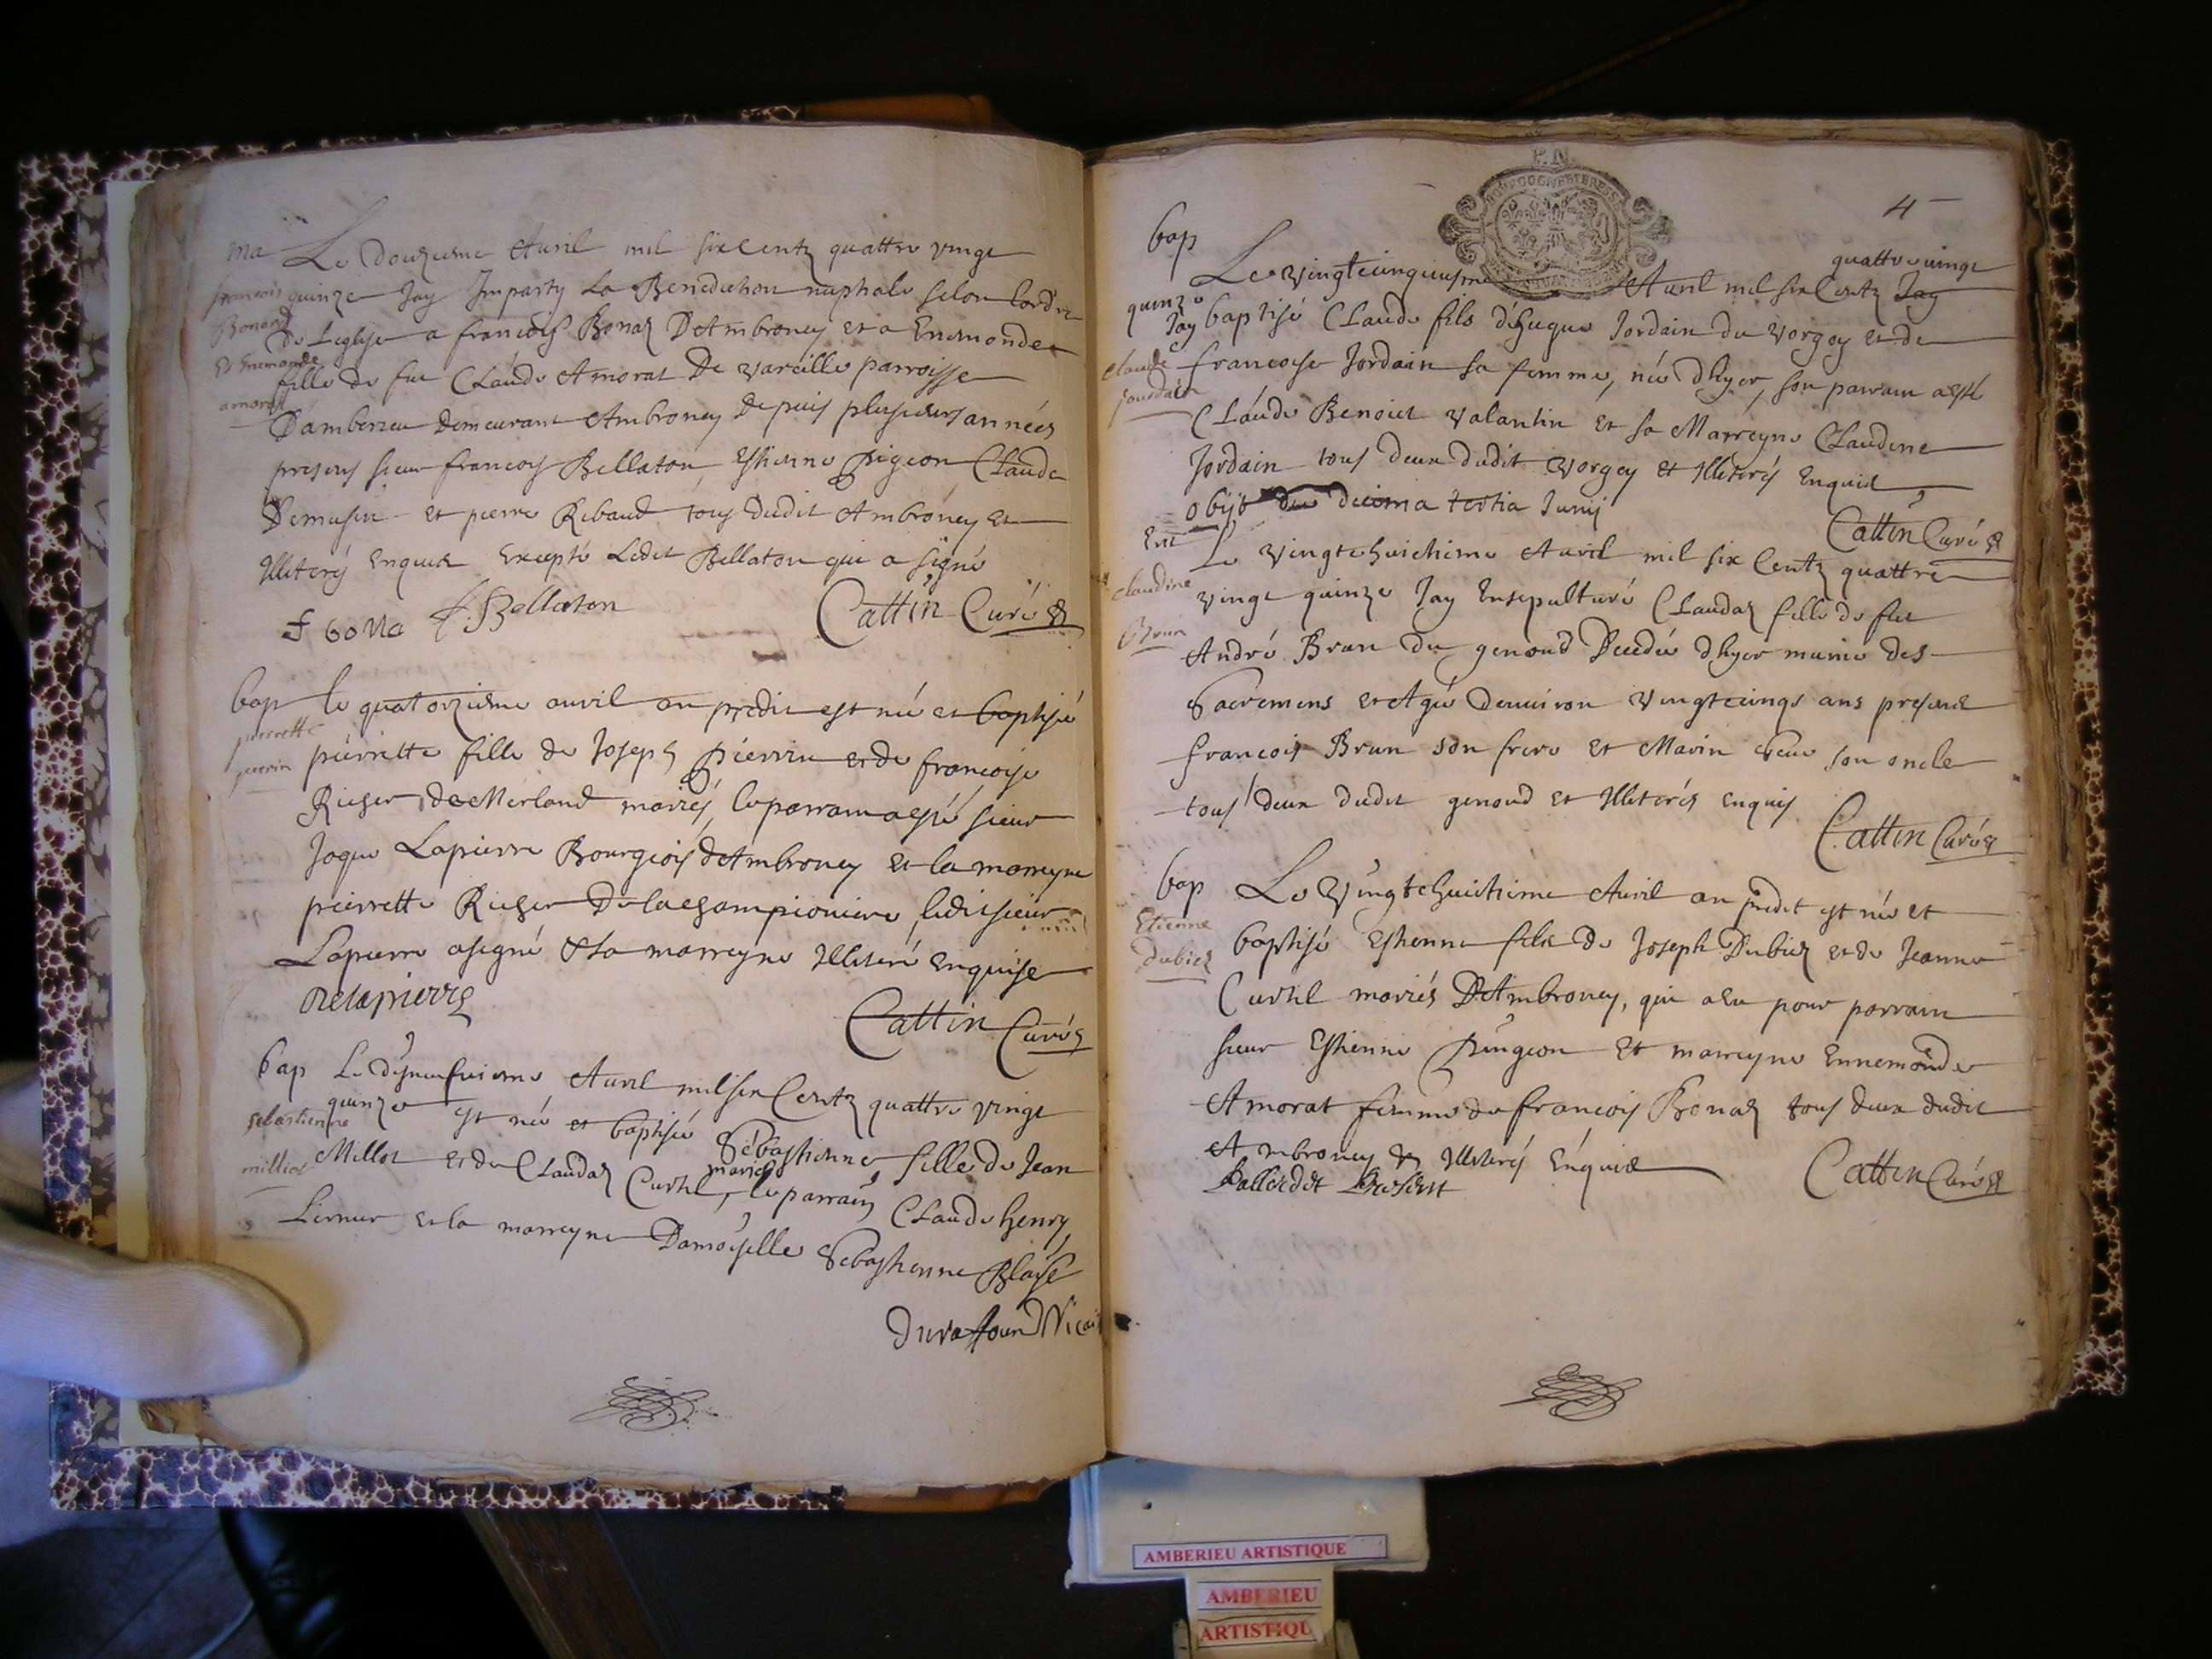 ma Le douziesme Avril mil six Centz quattre vingt
francois quinze Jay Imparty La Benediction nuptiale selon lordre
Bonard De Leglise a francois Bonaz D'Ambroney et a Enemonde
Et Enemonde fille de fut Claude Amorat De vareille parroisse
amorat D'amberieu demeurant Ambroney depuis plusieurs années
presens sieur francois Bellaton, Estienne Pigeon Claude
Demusin et pierre Ribaud tous dudit Ambroney Et
Illiterés Enquis Excepté Ledit Bellaton qui a signé
f bona f. Bellaton Cattin Curé
bap le quatorzieme avril an predit est née et baptisé
pierrette pierrette fille de Joseph pierrin et de francoise
perrin Richer de Merland mariés, le parrain a esté sieur
Jaque Lapierre Bourgeois d'Ambroney et la marreyne
pierrette Richer De la championiere, ledit sieur
Lapierre a signé & la marreyne Illiteré enquise
Delapierre
Cattin Curé
bap Le dixneufuieme Avril mil six Centz quattre vingt
quinze est née et baptisée Sébastienne, fille de Jean
sebastienne
milliot Millot et de Claudaz Curtil, mariés le parrain Claude henry
Liernur et la marreyne Damoiselle Sebastienne Blaise
Duraffourd Vicai
4
F.N.
BOURGOGNE ET BRESSE
bap
Le vingtcinquiesme Avril mil six Centz quattre vingt Jay
quinze Jay baptisé Claude fils d'hugue Jordain du Vorgey et de
claude francoise Jordain sa femme, née dhyer, son parrain a esté
Jourdain Claude Benoict Valantin et sa Marreyne Claudine
Jordain tous deux dudit Vorgey et Illiterés Enquis
obijt die decima tertia Junij
Cattin Curé
Ent Le vingt huictieme Avril mil six Centz quattre
claudine vingt quinze Jay Ensepulturé Claudaz fille de fut
Brun André Brun du genoud Decedée dhyer munie des
Sacremens et Agée denuiron vingtcinqs ans presens
francois Brun son frere et Marin son oncle
tous deux dudit genoud et Illiterés enquis
Cattin Curé
bap Le Vingt huictieme Avril an predit est née et
Etienne baptisé Estienne fils de Joseph Dubiez et de Jeanne
dubiez Curtil mariés D'Ambroney, qui a eu pour parrain
sieur Estienne Pingeon Et marreyne Ennemonde
Amorat femme de francois Bonaz tous deux dudit
Ambroney & Illiterés Enquis
Cattin Curé
AMBERIEU ARTISTIQUE
AMBERIEU
ARTISTIQU